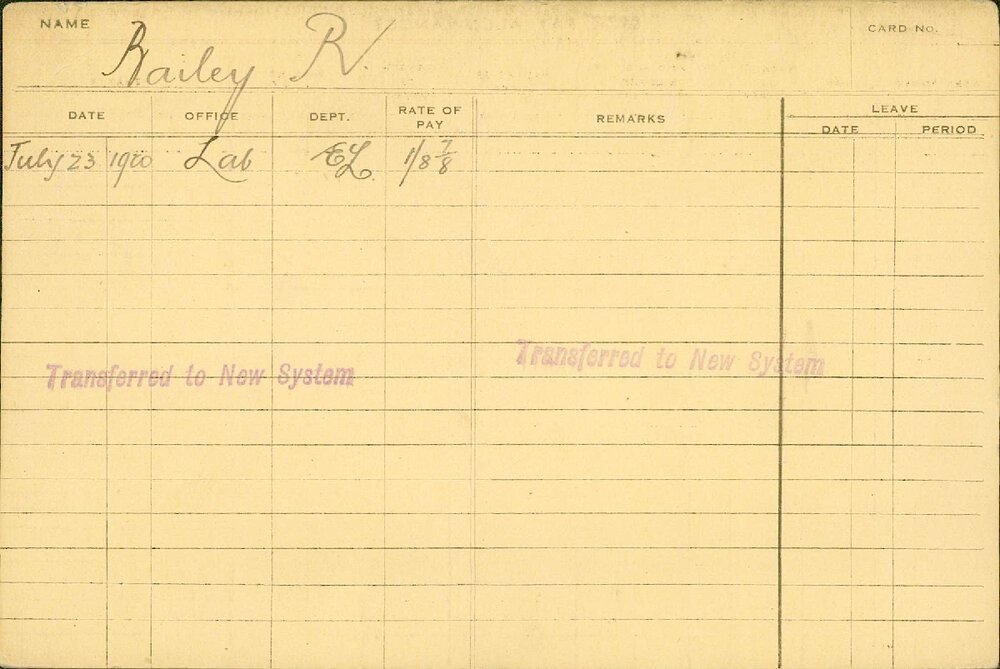 NAME CARD NO.
Railey R.
DATE OFFICE DEPT. RATE OF PAY REMARKS LEAVE
DATE PERIOD
July 23 1920 Lab EL. 1/8 7/8
Transferred to New System Transferred to New System